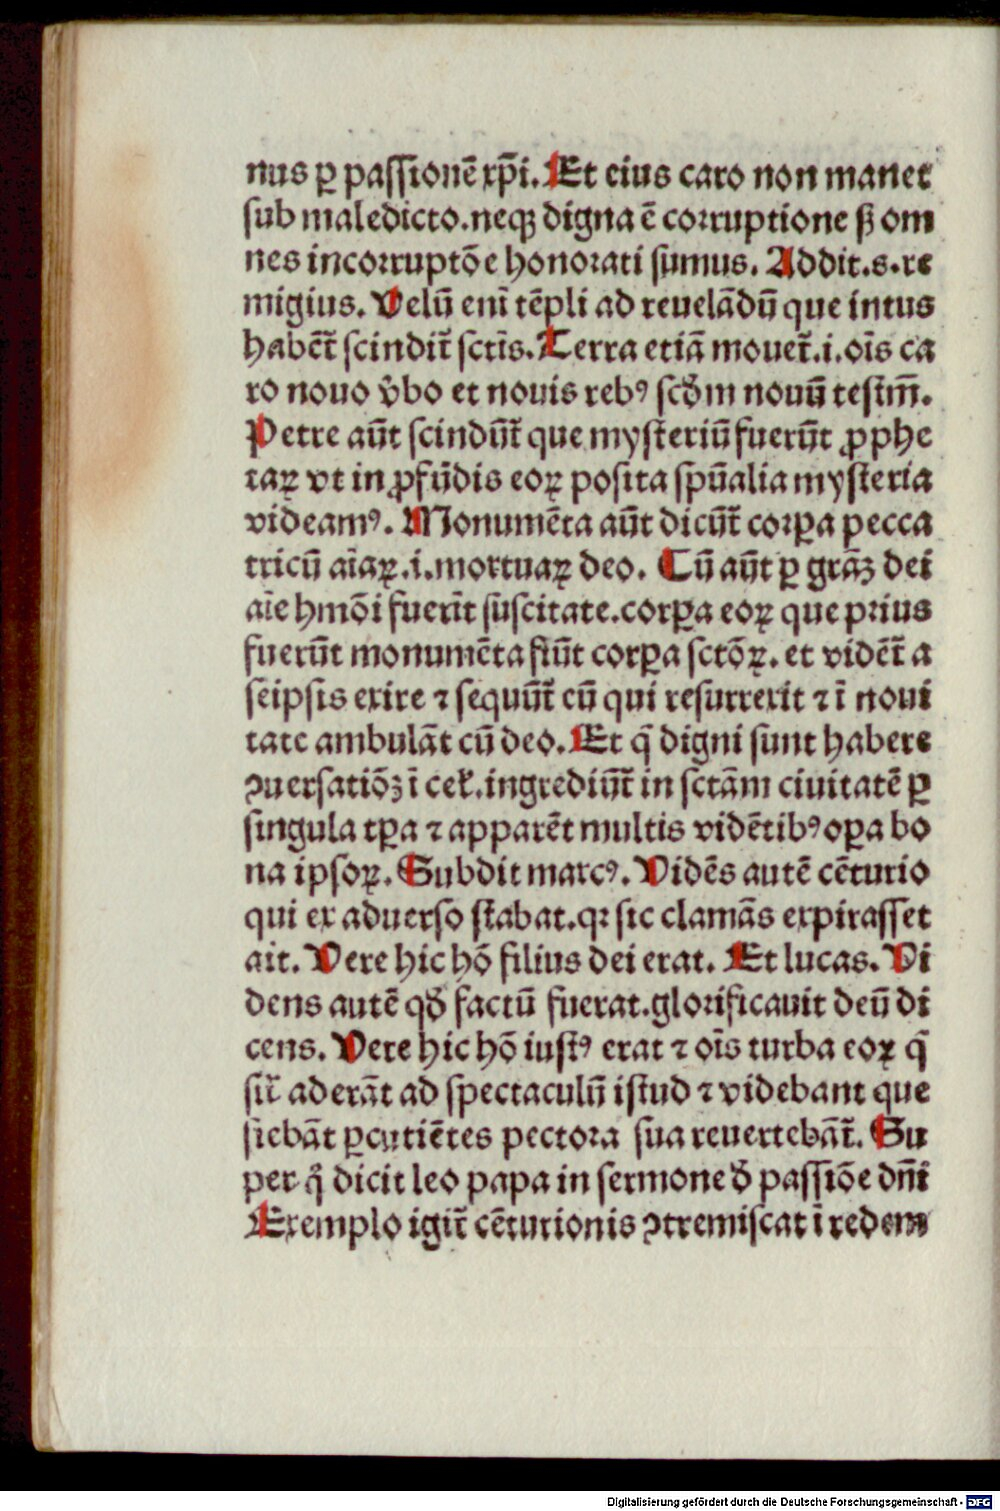 nus ꝑ passionē xp̄i. Et eius caro non manet
sub maledicto. neqꝫ digna ē corruptione ß om
nes incorruptōe honorati sumus. Addit. s. re
migius. Velū eni̅ tēpli ad reuelādū que intus
habēt̄ scindit̄ sctīs. Terra etiā mouet̄. i. oīs ca
ro nouo v̄bo et nouis rebꝰ scd̄m nouū testm̄.
Petre aūt scindūt̄ que mysteriū fuerūt ꝓphe
taꝝ vt in ꝓfūdis eoꝝ posita spūalia mysteria
videamꝰ. Monumēta aūt dicūt̄ corꝑa pecca
tricū aīaꝝ. i. mortuaꝝ deo. Cū aūt ꝑ grāꝫ dei
aīe hmōi fuerīt suscitate. corꝑa eoꝝ que prius
fuerūt monumēta fiūt corꝑa sctōꝝ. et vidēt̄ a
seipsis exire ⁊ sequūt̄ cū qui resurrexit ⁊ ī noui
tate ambulāt cū deo. Et q̄ digni sunt habere
ꝯuersatiōꝫ ī cel̄. ingrediūt̄ in sctām ciuitatē ꝑ
singula tꝑa ⁊ apparēt multis vidētibꝰ oꝑa bo
na ipsoꝝ. Subdit marcꝰ. Vidēs autē cēturio
qui ex aduerso stabat. qꝛ sic clamās expirasset
ait. Vere hic hō filius dei erat. Et lucas. Vi
dens autē qd̄ factū fuerat. glorificauit deū di
cens. Vere hic hō iustꝰ erat ⁊ oīs turba eoꝝ q̄
sil̄ aderāt ad spectaculū istud ⁊ videbant que
fiebāt ꝑcutiētes pectora sua reuertebāt̄. Su
per q̄ dicit leo papa in sermone d̄ passiōe dn̄i
Exemplo igit̄ cēturionis ꝯtremiscat ī redem
Digitalisierung gefördert durch die Deutsche Forschungsgemeinschaft - DFG